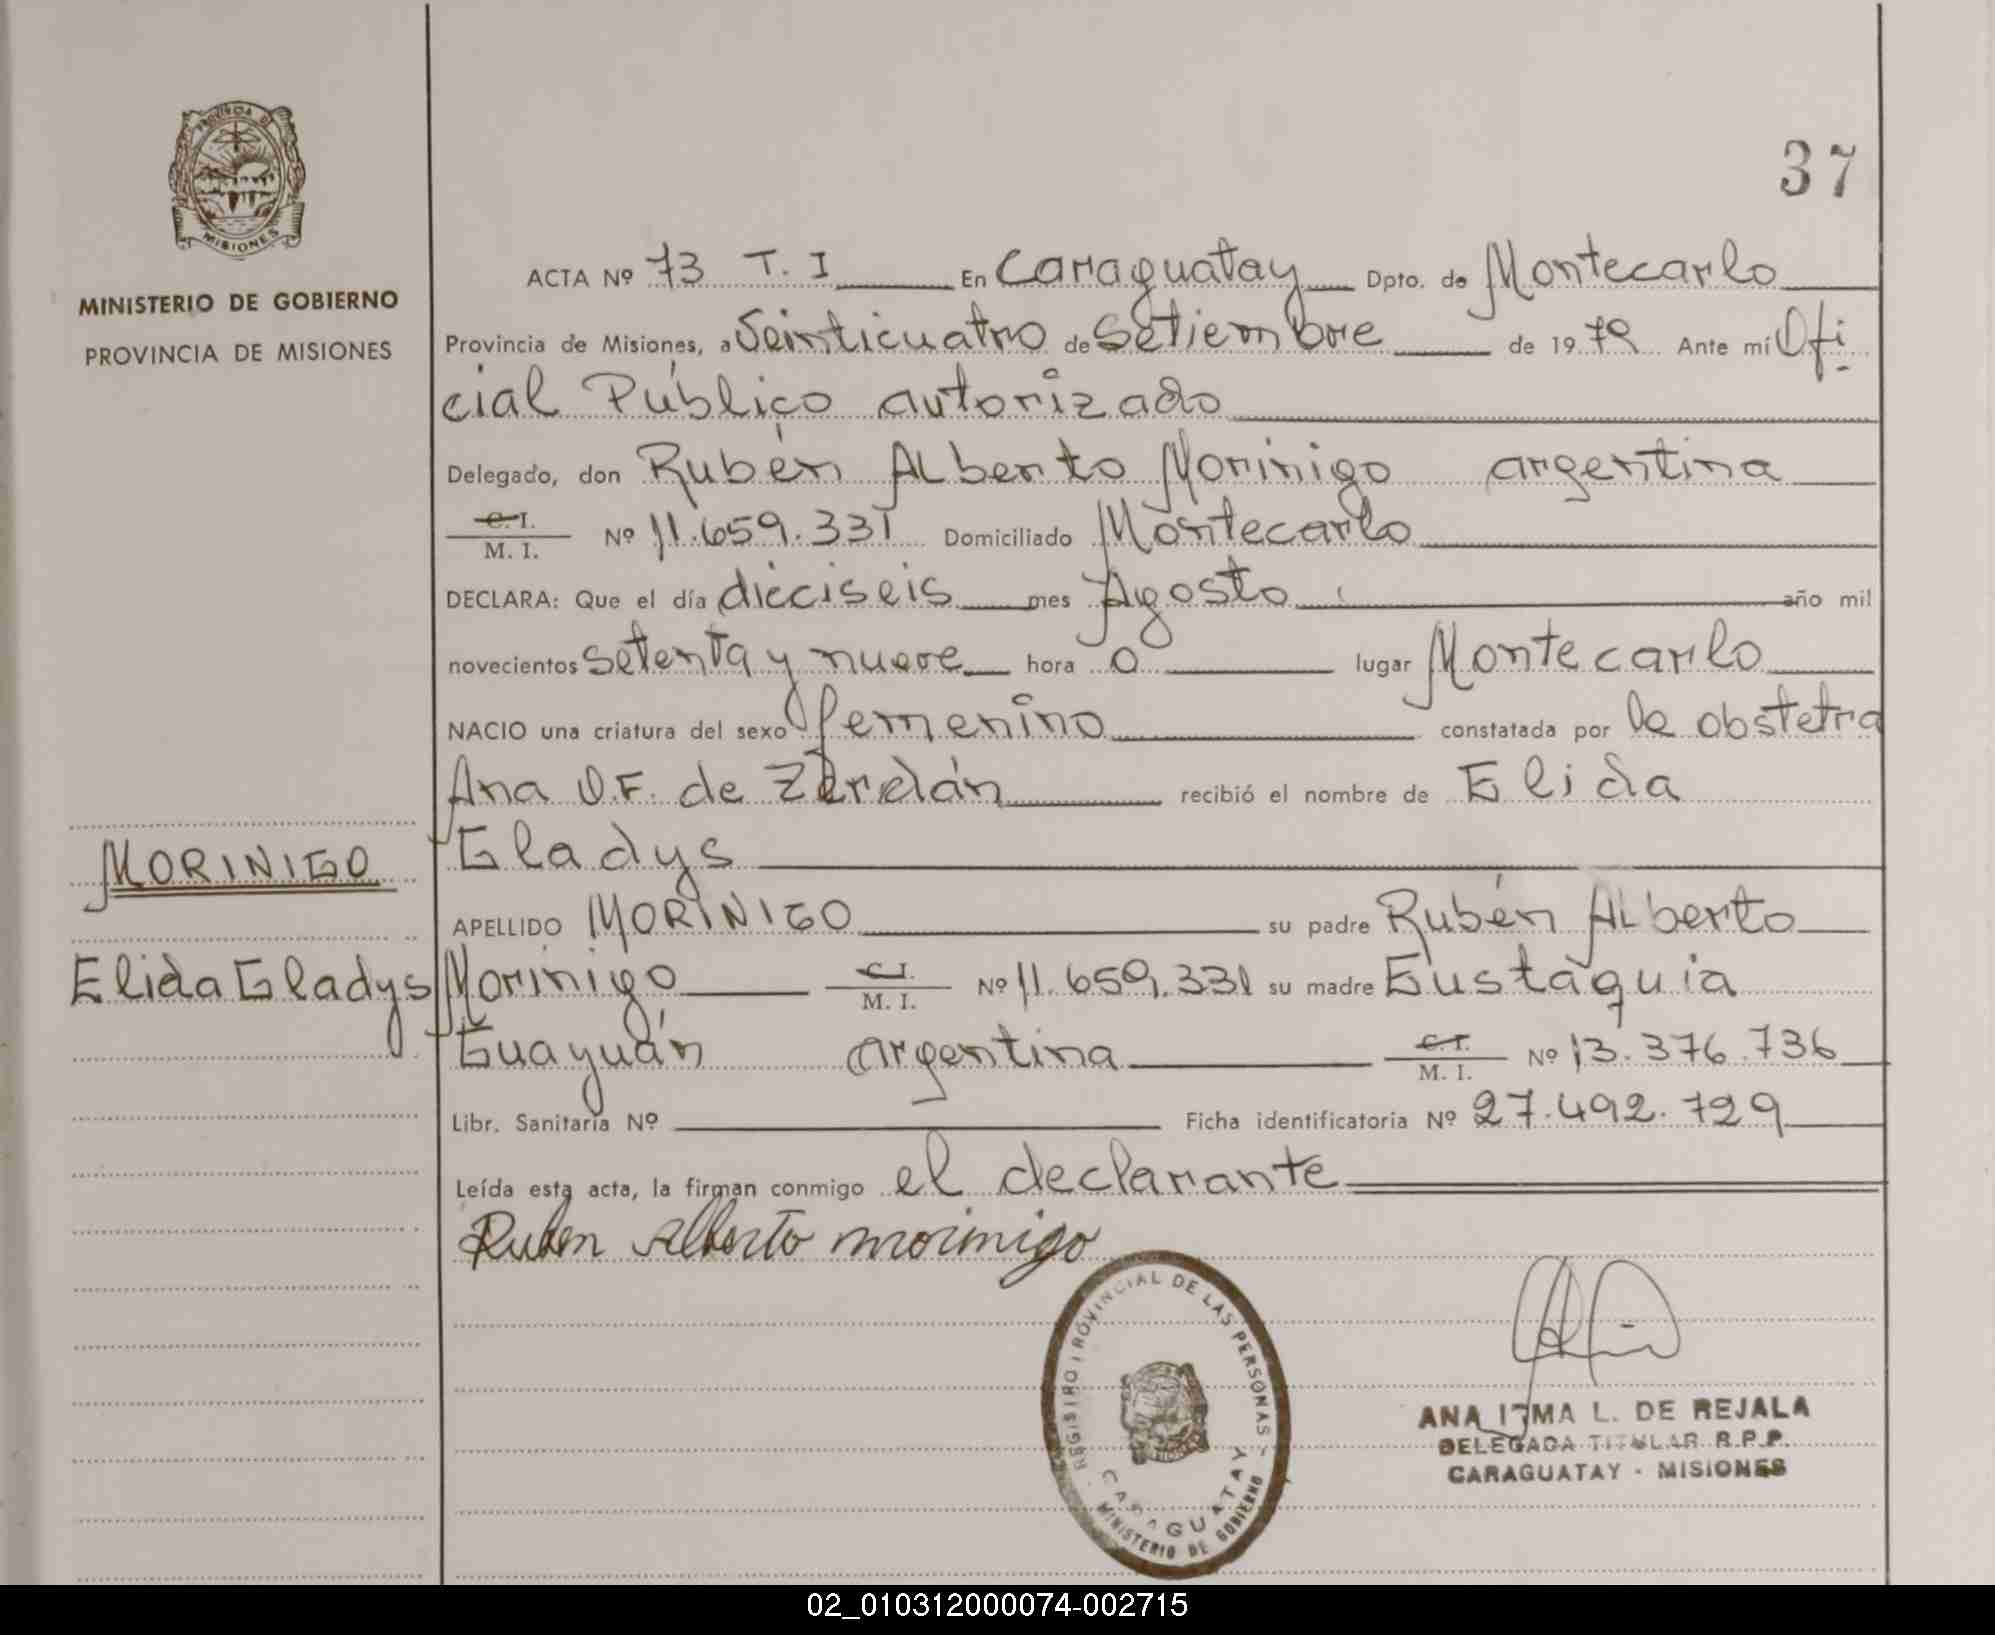 37
PROVINCIA DE
MISIONES
MINISTERIO DE GOBIERNO
PROVINCIA DE MISIONES
ACTA Nº 73 T. I En Caraguatay Dpto. de Montecarlo
Provincia de Misiones, a Veinticuatro de Setiembre de 1979 Ante mí Ofi
cial Público autorizado
Delegado, don Rubén Alberto Morinigo argentina
C. I. M. I. Nº 11.659.331 Domiciliado Montecarlo
DECLARA: Que el día dieciseis mes Agosto año mil
novecientos setenta y nueve hora 0 lugar Montecarlo
NACIO una criatura del sexo femenino constatada por la obstetra
Ana O.F. de Zerdán recibió el nombre de Elida
Gladys
MORINIGO
APELLIDO MORINIGO su padre Rubén Alberto
Elida Gladys
Morinigo C.I. M. I. Nº 11.659.331 su madre Eustaquia
Guayuán argentina C.I. M. I. Nº 13.376.736
Libr. Sanitaria Nº Ficha identificatoria Nº 27.492.729
Leída esta acta, la firman conmigo el declarante
Ruben Alberto morinigo
REGISTRO PROVINCIAL DE LAS PERSONAS
CARAGUATAY
MINISTERIO DE GOBIERNO
ANA IRMA L. DE REJALA
DELEGADA TITULAR R.P.P.
CARAGUATAY - MISIONES
02_010312000074-002715